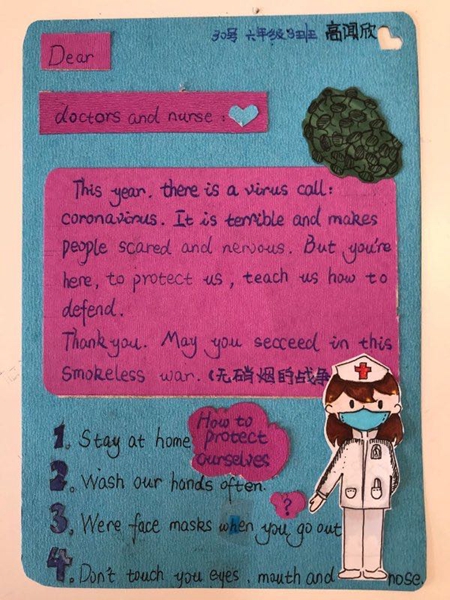 30号 六年级3班 高闻欣
Dear
doctors and nurse:
This year. there is a virus call:
coronavirus. It is terrible and makes
people scared and nervous. But you're
here, to protect us, teach us how to
defend.
Thank you. May you secceed in this
Smokeless war. (无硝烟的战争
How to
protect
ourselves
1. Stay at home
2. Wash our hands often.
?
3. Were face masks when you go out
4. Don't touch you eyes, mouth and nose.